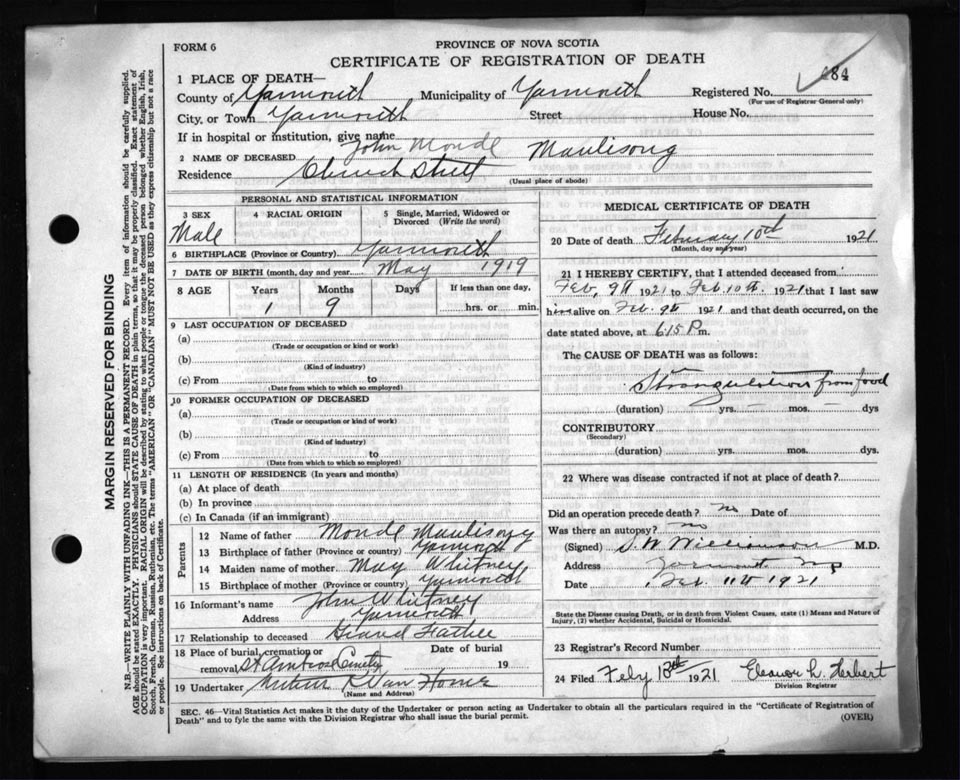 FORM 6
PROVINCE OF NOVA SCOTIA
CERTIFICATE OF REGISTRATION OF DEATH
84
1 PLACE OF DEATH—
County of Yarmouth Municipality of Yarmouth Registered No.
(For use of Registrar General only)
City, or Town Yarmouth Street House No.
If in hospital or institution, give name
2 NAME OF DECEASED John Monde Maulisong
Residence Church Street
(Usual place of abode)
PERSONAL AND STATISTICAL INFORMATION
3 SEX 4 RACIAL ORIGIN 5 Single, Married, Widowed or Divorced (Write the word)
Male
6 BIRTHPLACE (Province or Country) Yarmouth
7 DATE OF BIRTH (month, day and year) May 1919
8 AGE Years Months Days If less than one day,
1 9 hrs. or min.
9 LAST OCCUPATION OF DECEASED
(a)
(Trade or occupation or kind or work)
(b)
(Kind of industry)
(c) From to
(Date from which to which so employed)
10 FORMER OCCUPATION OF DECEASED
(a)
(Trade or occupation or kind of work)
(b)
(Kind of industry)
(c) From to
(Date from which to which so employed)
11 LENGTH OF RESIDENCE (In years and months)
(a) At place of death
(b) In province
(c) In Canada (if an immigrant)
Parents
12 Name of father Monde Maulisong
13 Birthplace of father (Province or country) Yarmouth
14 Maiden name of mother May Whitney
15 Birthplace of mother (Province or country) Yarmouth
16 Informant's name John Whitney
Address Yarmouth
17 Relationship to deceased Grand Father
18 Place of burial, cremation or removal St Ambrose Cemetry Date of burial 19
19 Undertaker Van Horne
(Name and Address)
MEDICAL CERTIFICATE OF DEATH
20 Date of death February 10th 1921
(Month, day and year)
21 I HEREBY CERTIFY, that I attended deceased from
Feb, 9th 1921 to Feb. 10th. 1921 that I last saw
him alive on Feb. 9th 1921 and that death occurred, on the
date stated above, at 6.15 P m.
The CAUSE OF DEATH was as follows:
Strangulation from food
(duration) yrs. mos. dys
CONTRIBUTORY
(Secondary)
(duration) yrs. mos. dys.
22 Where was disease contracted if not at place of death?
Did an operation precede death? no Date of
Was there an autopsy? no
(Signed) S. W. Williamson M.D.
Address Yarmouth, NS
Date Feb. 11th 1921
State the Disease causing Death, or in death from Violent Causes, state (1) Means and Nature of
Injury, (2) whether Accidental, Suicidal or Homicidal.
23 Registrar's Record Number
24 Filed Feby 1921 Eleanor L. Herbert
Division Registrar
SEC. 46—Vital Statistics Act makes it the duty of the Undertaker or person acting as Undertaker to obtain all the particulars required in the "Certificate of Registration of
Death" and to fyle the same with the Division Registrar who shall issue the burial permit.
(OVER)
MARGIN RESERVED FOR BINDING
N.B.—WRITE PLAINLY WITH UNFADING INK—THIS IS A PERMANENT RECORD. Every item of information should be carefully supplied.
AGE should be stated EXACTLY. PHYSICIANS should STATE CAUSE OF DEATH in plain terms, so that it may be properly classified. Exact statement of
OCCUPATION is very important. RACIAL ORIGIN will be described by stating to what people or tongue the deceased person belonged whether English, Irish,
Scotch, French, German, Russian, Ruthenian, etc. The terms "AMERICAN" OR "CANADIAN" MUST NOT BE USED as they express citizenship but not a race
or people. See instructions on back of Certificate.